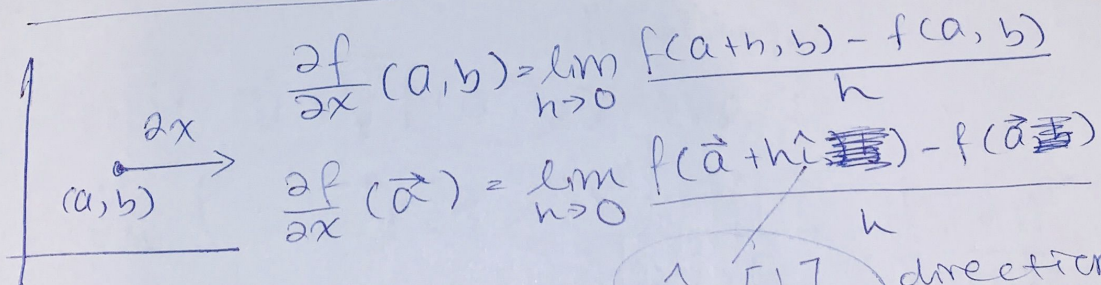 ∂f/∂x (a,b) = lim h→0 f(a+h, b) - f(a, b) / h
∂x
(a,b)
∂f/∂x (a⃗) = lim h→0 f(a⃗ + hî) - f(a⃗) / h
direction